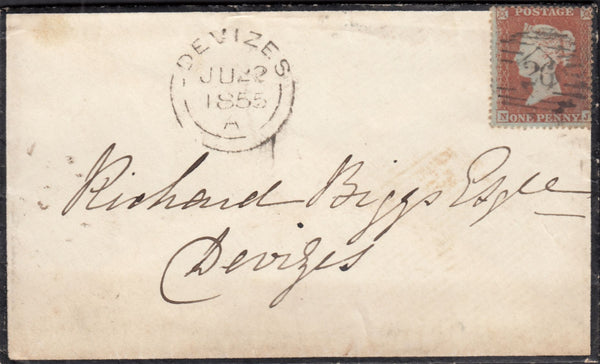 DEVIZES
JU 22
1855
A
POSTAGE
N J
ONE PENNY
Richard Biggs Esqre
Devizes